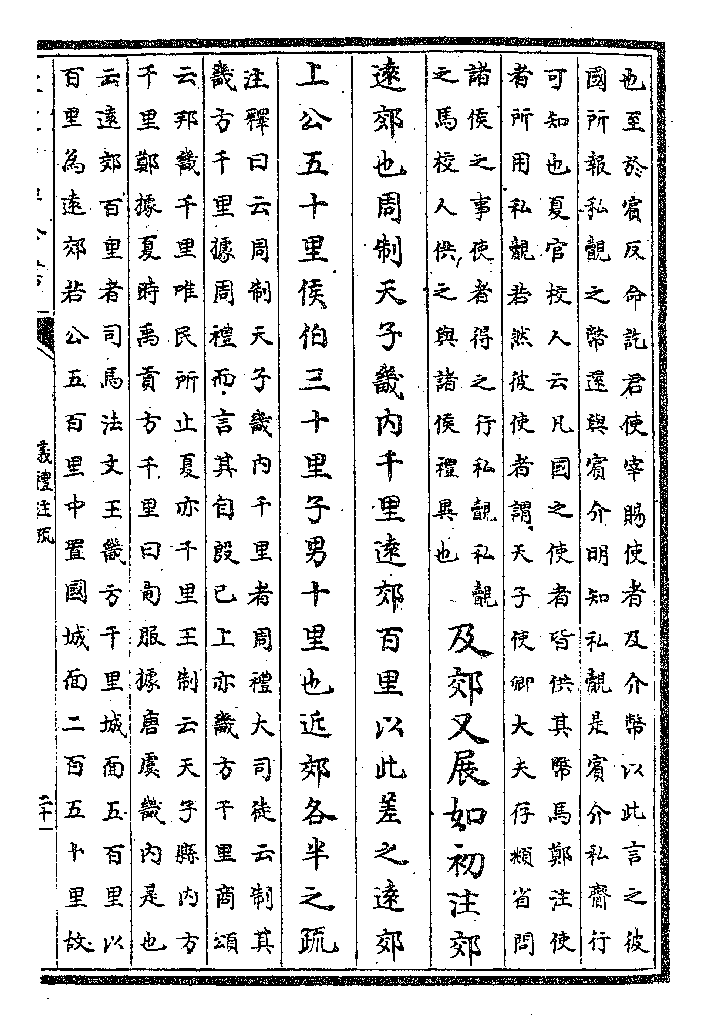 也至於賔反命訖君使宰賜使者及介幣以此言之彼
國所報私覿之幣還與賔介明知私覿是賔介私齎行
可知也夏官校人云凡國之使者皆供其幣馬鄭注使
者所用私覿若然彼使者謂天子使卿大夫存頫省問
諸侯之事使者得之行私覿私覿
之馬校人供之與諸侯禮異也
及郊又展如初注郊
遠郊也周制天子畿内千里遠郊百里以此差之遠郊
上公五十里侯伯三十里子男十里也近郊各半之疏
注釋曰云周制天子畿内千里者周禮大司徒云制其
畿方千里據周禮而言其自殷已上亦畿方千里商頌
云邦畿千里唯民所止夏亦千里王制云天子縣内方
千里鄭據夏時禹貢方千里曰甸服據唐虞畿内是也
云遠郊百里者司馬法文王畿方千里城面五百里以
百里為遠郊若公五百里中置國城面二百五十里故
儀禮注疏
二十一